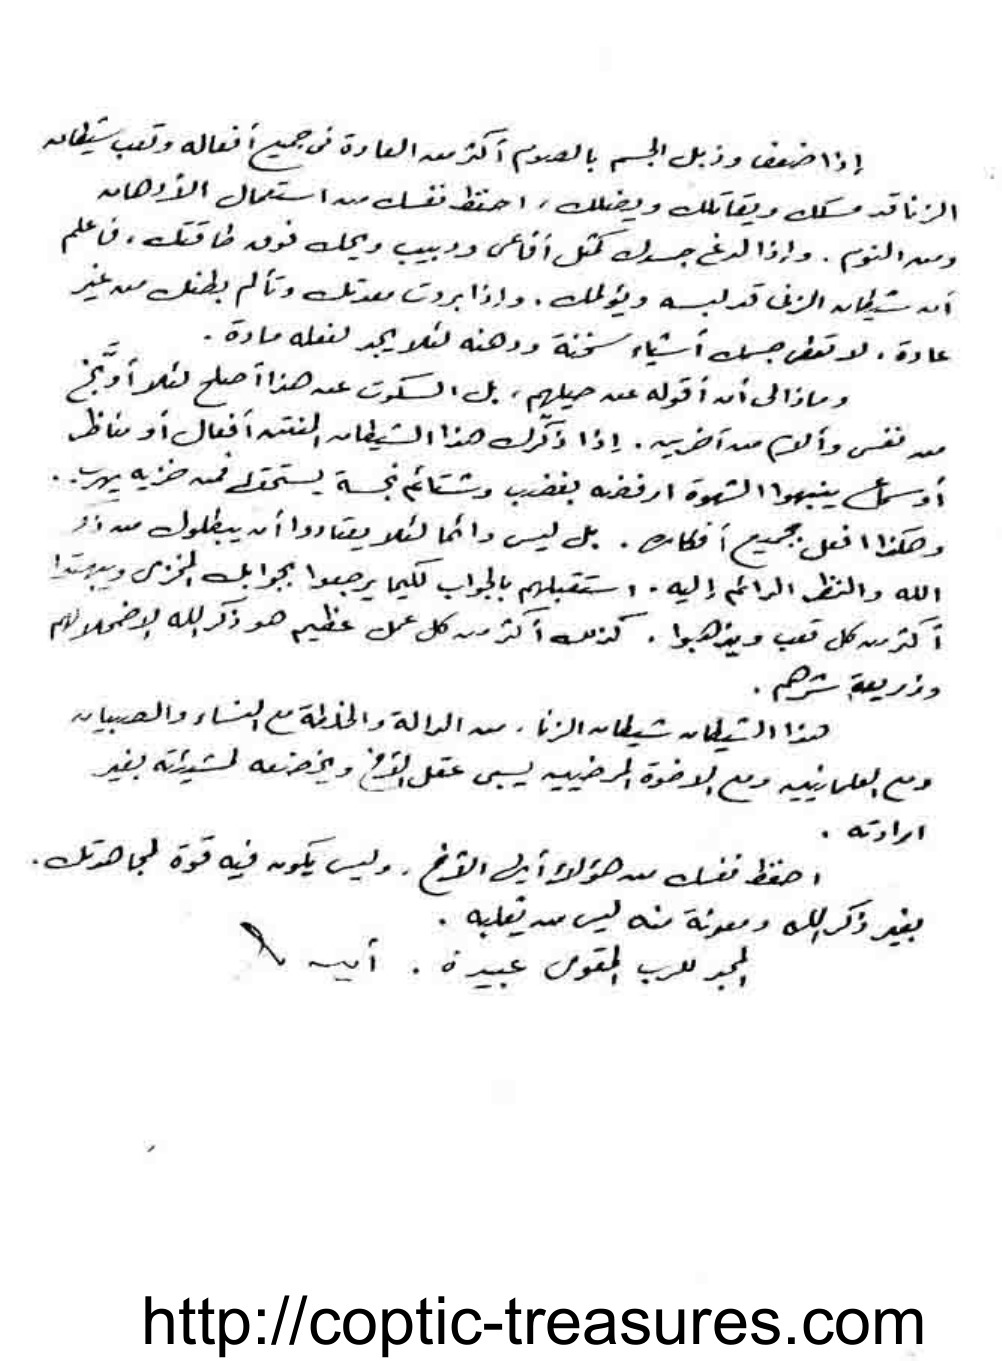 إذا ضعف وذبل الجسم بالصوم أكثر من العادة فى جميع أفعاله وتعب شيطان
الزنا قد مسكك ويقاتلك ويضلك ، احفظ نفسك من استعمال الأدهان
ومن النوم . وإذا لدغ جسدك كمثل أفاعى ودبيب ويحك فوق طاقتك ، فاعلم
أن شيطان الزنى قد لبسه ويؤلمك . وإذا بردت معدتك وتألم بطنك من غير
عادة ، لا تعط جسمك أشياء سخنة ودهنه لئلا يجد لفعله مادة .
وماذا لى أن أقوله عن حيلهم ، بل السكوت عن هذا أصلح لئلا أوبَّخ
من نفسى وألام من آخرين . إذا ذكّرك هذا الشيطان المفتن أفعال أو مناظر
أو سماع ينبهوا الشهوة ارفضه بغضب وشتائم نجسة يستحقها فمن خزيه يهرب .
وهكذا افعل بجميع أفكاره . بل ليس دائما لئلا يعتادوا أن يبطلوك من ذكر
الله والنظر الدائم إليه . استقبلهم بالجواب لكيما يرجعوا بجوابك المخزى ويبهتوا
أكثر من كل تعب ويذهبوا . كذلك أكثر من كل عمل عظيم هو ذكر الله لاضمحلالهم
وذريعة شرهم .
هذا الشيطان شيطان الزنا ، من الدالة والخلطة مع النساء والصبيان
ومع العلمانيين ومع الاخوة المرخيين يسبى عقل الأخ ويخضعه لمشيئته بغير
ارادته .
احفظ نفسك من هؤلاء أيها الأخ ، وليس يكون فيه قوة لمجاهدتك .
بغير ذكر الله ومعونة منه ليس من يغلبه .
المجد للرب المقوى عبيده . أمين
http://coptic-treasures.com